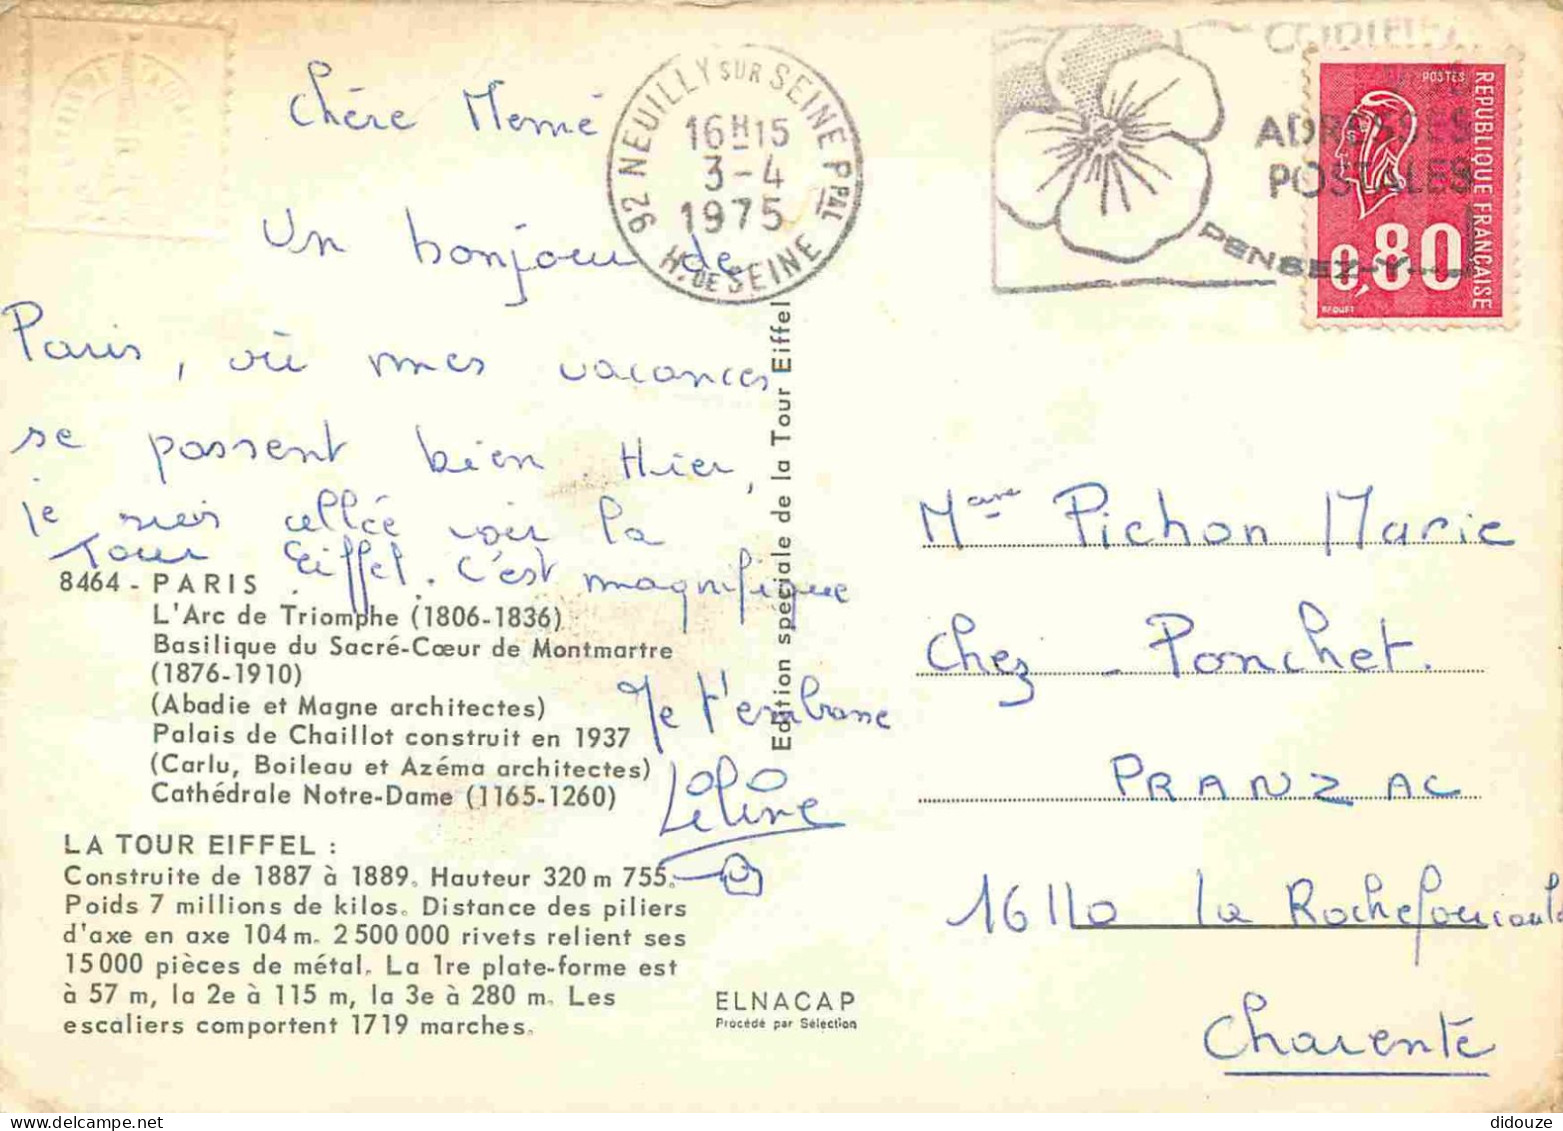 Chère Mémé
Un bonjour de
Paris, où mes vacances
se passent bien. Hier,
je suis allée voir la
Tour Eiffel. C'est magnifique
Je t'embrasse
92 NEUILLY SUR SEINE PPAL
16H15
3-4
1975
H. DE SEINE
ADRESSES
POSTALES
PENSEZ-Y
POSTES
REPUBLIQUE FRANÇAISE
0,80
Mme Pichon Marie
Chez - Ponchet.
PRANZAC
16110 La Rochefoucauld
Charente
Edition spéciale de la Tour Eiffel
8464 - PARIS
L'Arc de Triomphe (1806-1836)
Basilique du Sacré-Cœur de Montmartre
(1876-1910)
(Abadie et Magne architectes)
Palais de Chaillot construit en 1937
(Carlu, Boileau et Azéma architectes)
Cathédrale Notre-Dame (1165-1260)
LA TOUR EIFFEL :
Construite de 1887 à 1889. Hauteur 320 m 755.
Poids 7 millions de kilos. Distance des piliers
d'axe en axe 104 m. 2 500 000 rivets relient ses
15 000 pièces de métal. La 1re plate-forme est
à 57 m, la 2e à 115 m, la 3e à 280 m. Les
escaliers comportent 1719 marches.
ELNACAP
Procédé par Sélection
didouze